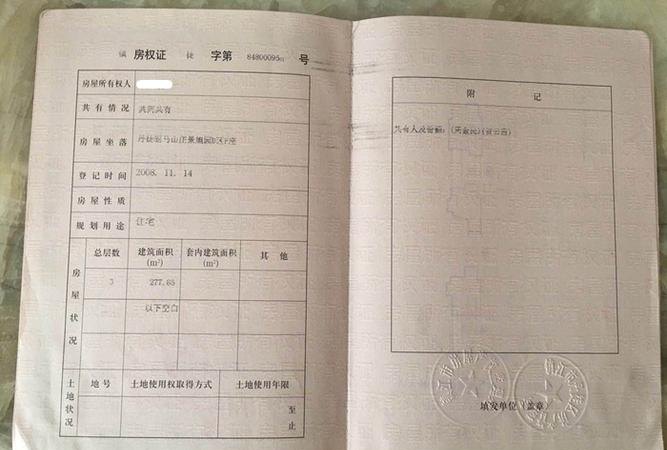 镇 房权证 徒 字第 84800095 号
房屋所有权人
共有情况 共同共有
房屋坐落
登记时间 2008.11.14
房屋性质
规划用途 住宅
房屋状况
总层数 建筑面积(m²) 套内建筑面积(m²) 其他
3 277.65
以下空白
土地状况
地号 土地使用权取得方式 土地使用年限
至
止
附 记
共有人及份额:
填发单位(盖章)